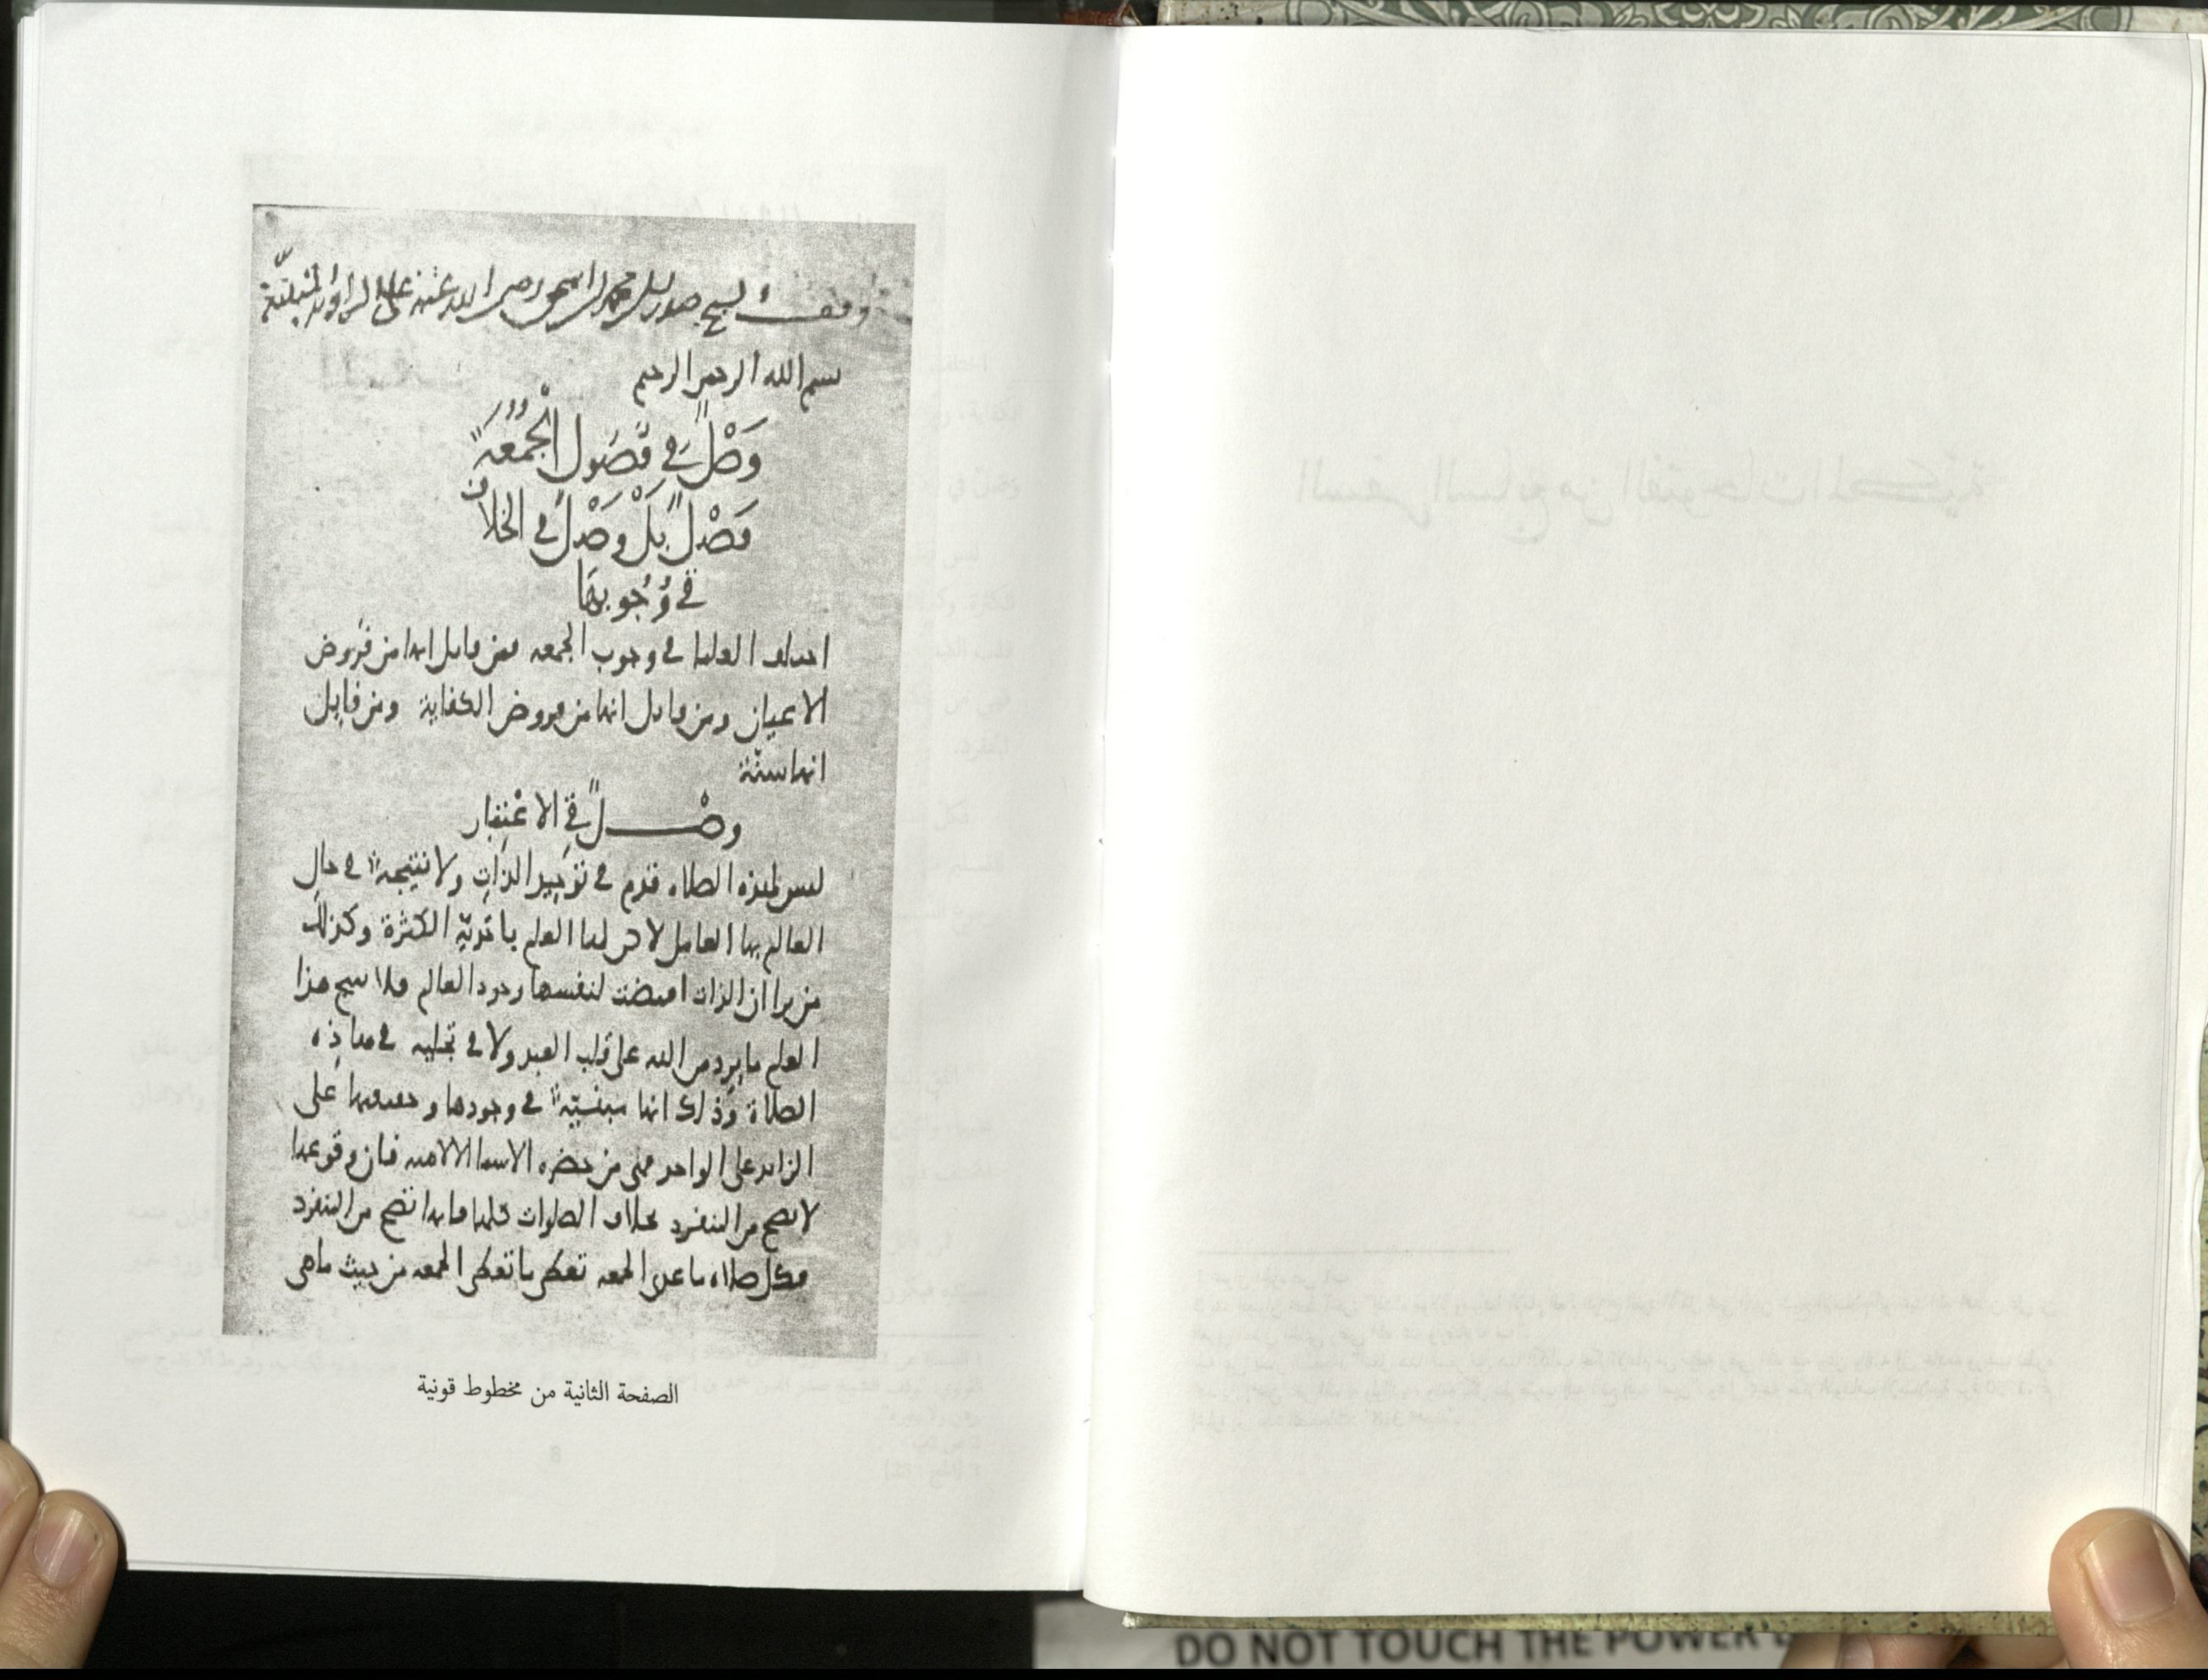 وقف الشيخ صدر الدين محمد بن اسحق رضي الله عنه على الزاوية
بسم الله الرحمن الرحيم
وَصْلٌ في فصُول الجُمُعَة
فَصْلٌ بَلْ وَصْلٌ في الخلاف
في وُجُوبها
اختلف العلما في وجوب الجمعه فمن قايل انها من فروض
الاعيان ومن قايل انها من فروض الكفاية ومن قايل
انها سنّة
وصْـــــلٌ في الاعْتِبَار
ليس لهذه الصلاه قدم في توحيد الذات ولا نتيجة في حال
العالم بها العامل لاكن لها العلم باحَديّة الكثرة وكذلك
من يرا ان الذات اقتضت لنفسها وجود العالم فلا ينتج هذا
العلم ما يرد من الله على قلب العبد ولا في تجليه في هاذه
الصلاة وذلك انها مبنيّة في وجودها وحقيقتها على
الزايد على الواحد فهي من حضره الاسما الالاهيه فان وقوعها
لا يصح من المنفرد بخلاف الصلوات كلها فانها تصح من المنفرد
فكل صلاه ما عدى الجمعه تعطى ما تعطى الجمعه من حيث ما هي
الصفحة الثانية من مخطوط قونية
DO NOT TOUCH THE POWER